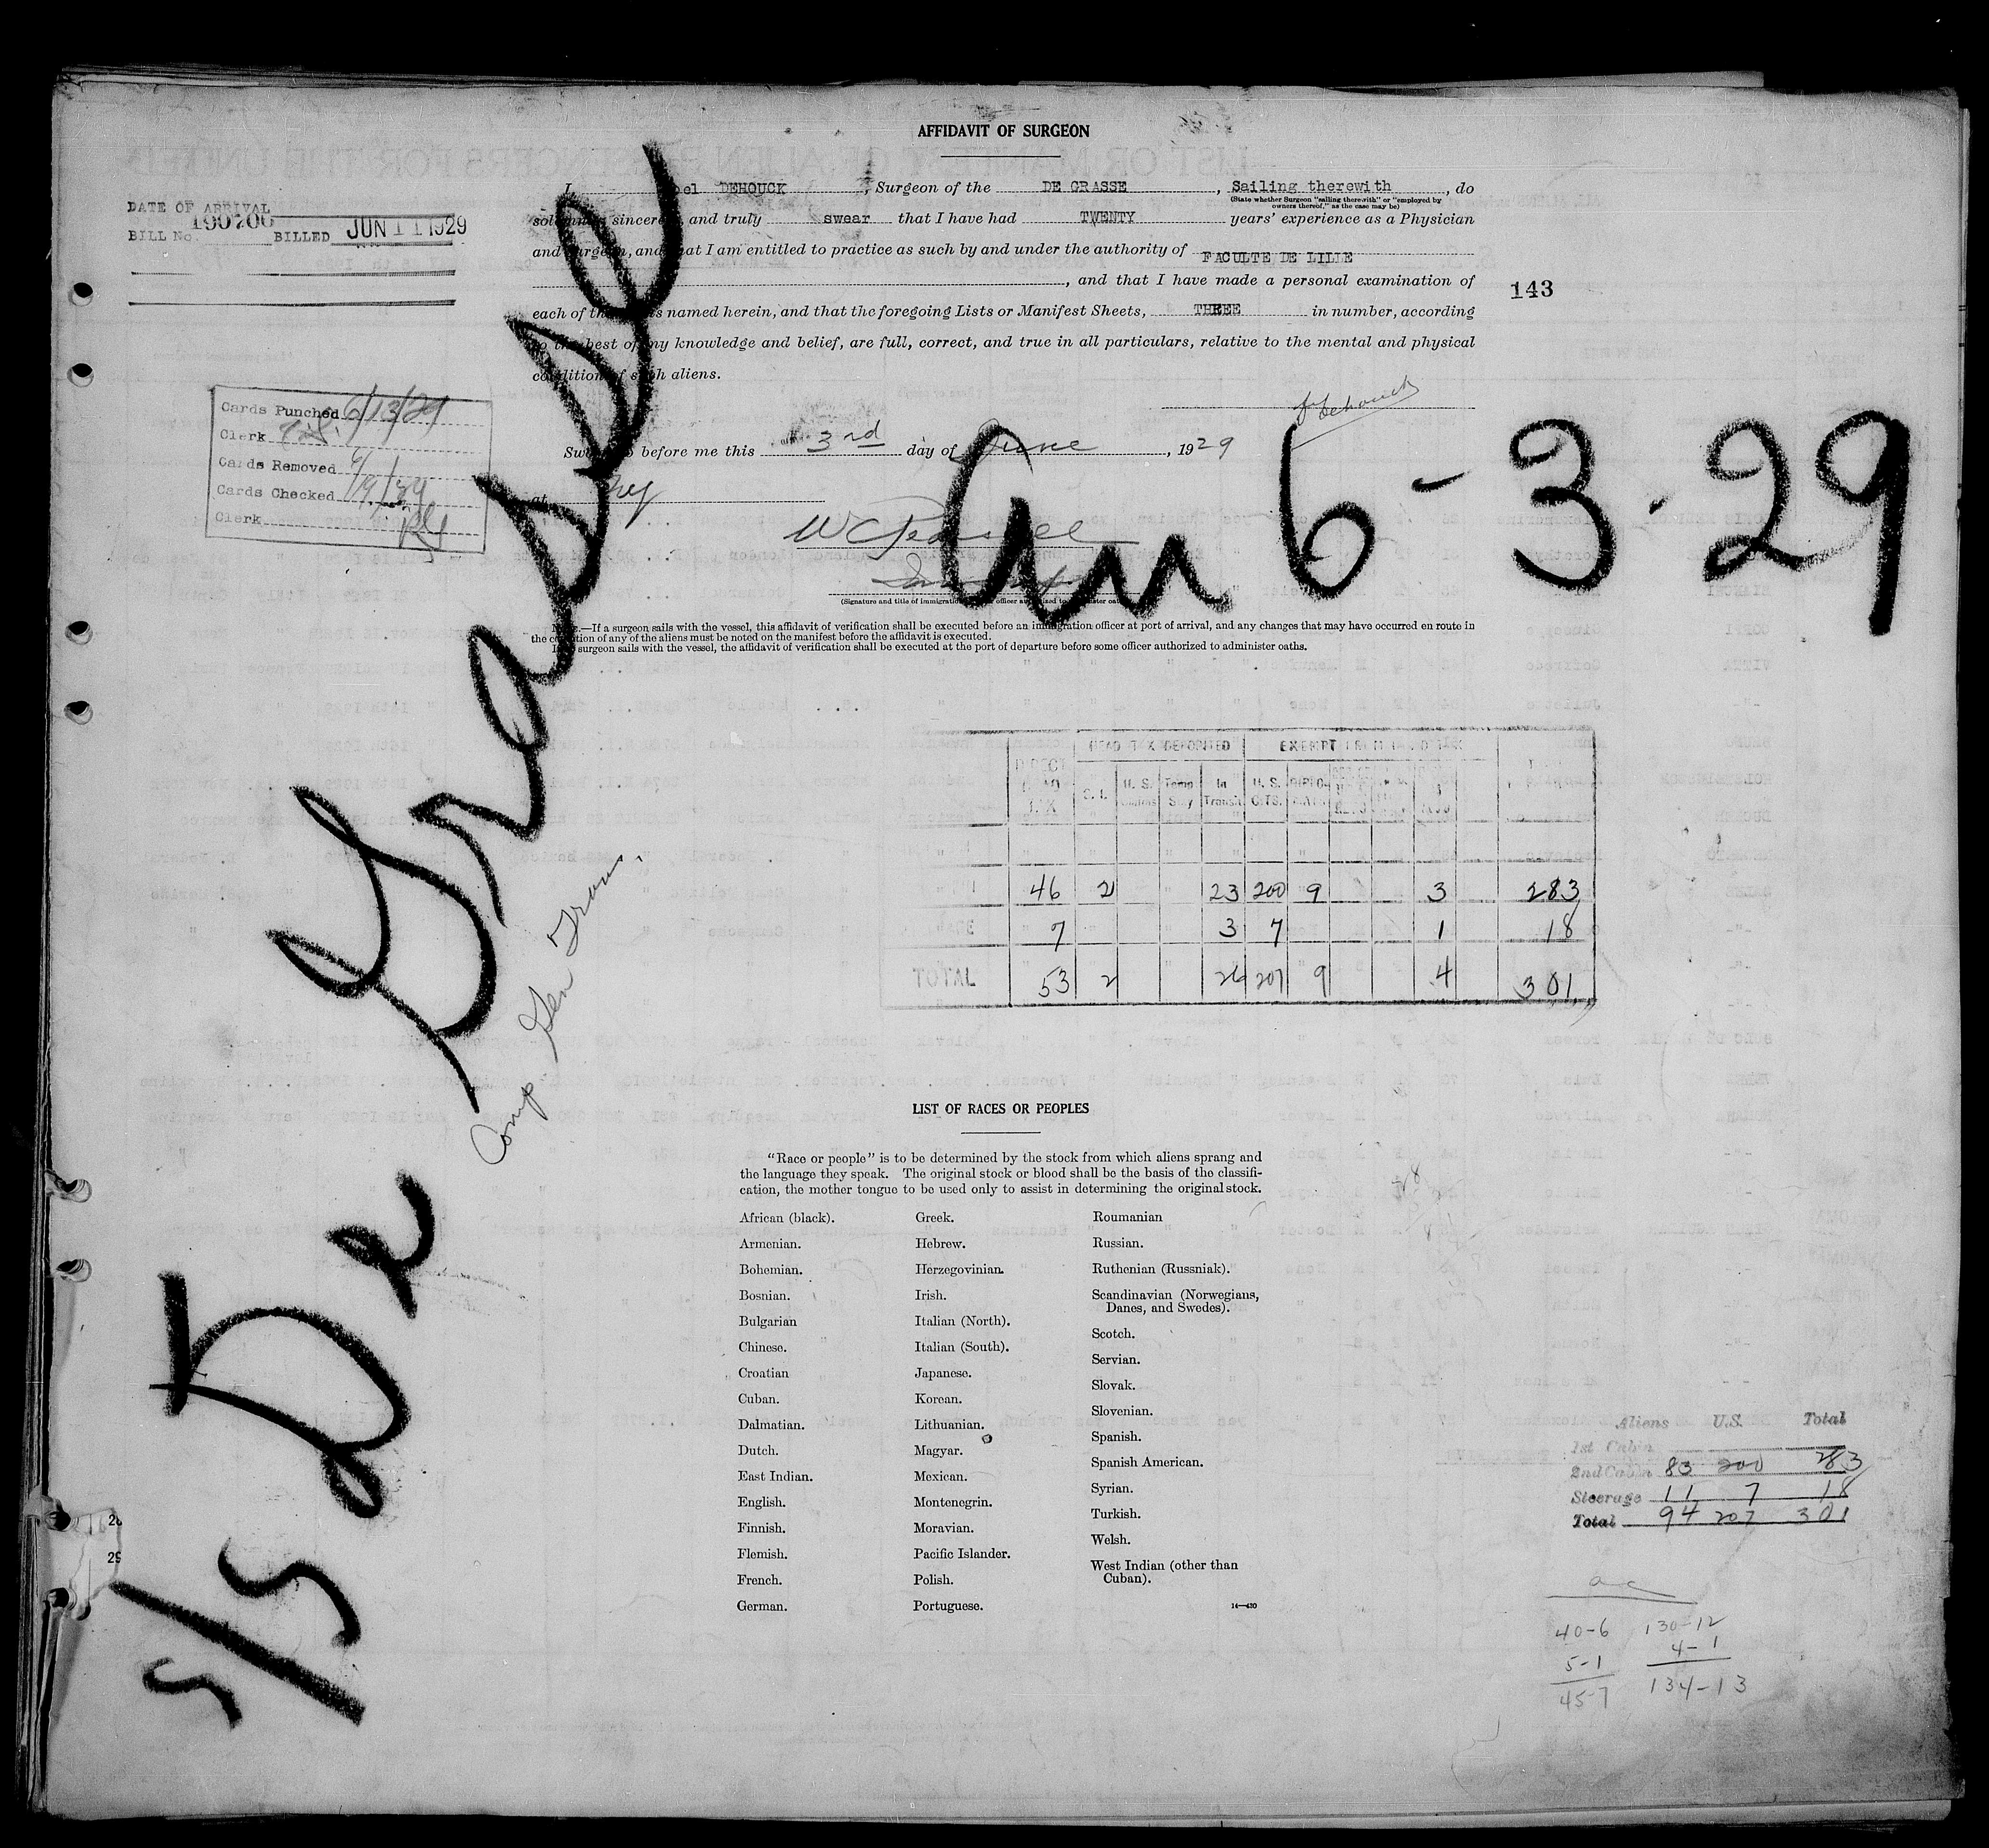 AFFIDAVIT OF SURGEON
I, DEHOUCK, Surgeon of the DE GRASSE, Sailing therewith, do
(State whether Surgeon "sailing therewith" or "employed by
owners thereof," as the case may be)
sincerely and truly swear that I have had TWENTY years' experience as a Physician
and Surgeon, and that I am entitled to practice as such by and under the authority of FACULTE DE LILLE
, and that I have made a personal examination of
each of the named herein, and that the foregoing Lists or Manifest Sheets, THREE in number, according
to the best of my knowledge and belief, are full, correct, and true in all particulars, relative to the mental and physical
condition of such aliens.
DATE OF ARRIVAL
BILL No. 190706 BILLED JUN 11 1929
143
Cards Punched 6/13/29
Clerk
Cards Removed
Cards Checked
Clerk
Dehouck
Sworn to before me this 3rd day of June, 1929
at NY
(Signature and title of immigration officer authorized to administer oaths)
NOTE.—If a surgeon sails with the vessel, this affidavit of verification shall be executed before an immigration officer at port of arrival, and any changes that may have occurred en route in
the condition of any of the aliens must be noted on the manifest before the affidavit is executed.
surgeon sails with the vessel, the affidavit of verification shall be executed at the port of departure before some officer authorized to administer oaths.
S/S De Grasse
Comp. Gen Trans.
6-3-29
HEAD TAX DEPOSITED EXEMPT FROM HEAD TAX
U.S. Temp Stay In Transit U.S. CITS.
46 2 23 200 9 3 283
7 3 7 1 18
TOTAL 53 2 26 207 9 4 301
LIST OF RACES OR PEOPLES
"Race or people" is to be determined by the stock from which aliens sprang and
the language they speak. The original stock or blood shall be the basis of the classifi-
cation, the mother tongue to be used only to assist in determining the original stock.
African (black).
Armenian.
Bohemian.
Bosnian.
Bulgarian
Chinese.
Croatian
Cuban.
Dalmatian.
Dutch.
East Indian.
English.
Finnish.
Flemish.
French.
German.
Greek.
Hebrew.
Herzegovinian.
Irish.
Italian (North).
Italian (South).
Japanese.
Korean.
Lithuanian.
Magyar.
Mexican.
Montenegrin.
Moravian.
Pacific Islander.
Polish.
Portuguese.
Roumanian
Russian.
Ruthenian (Russniak).
Scandinavian (Norwegians,
Danes, and Swedes).
Scotch.
Servian.
Slovak.
Slovenian.
Spanish.
Spanish American.
Syrian.
Turkish.
Welsh.
West Indian (other than
Cuban).
14—430
Aliens U.S. Total
1st Cabin
2nd Cabin 83 200 283
Steerage 11 7 18
Total 94 207 301
40-6 130-12
5-1 4-1
45-7 134-13
28
29